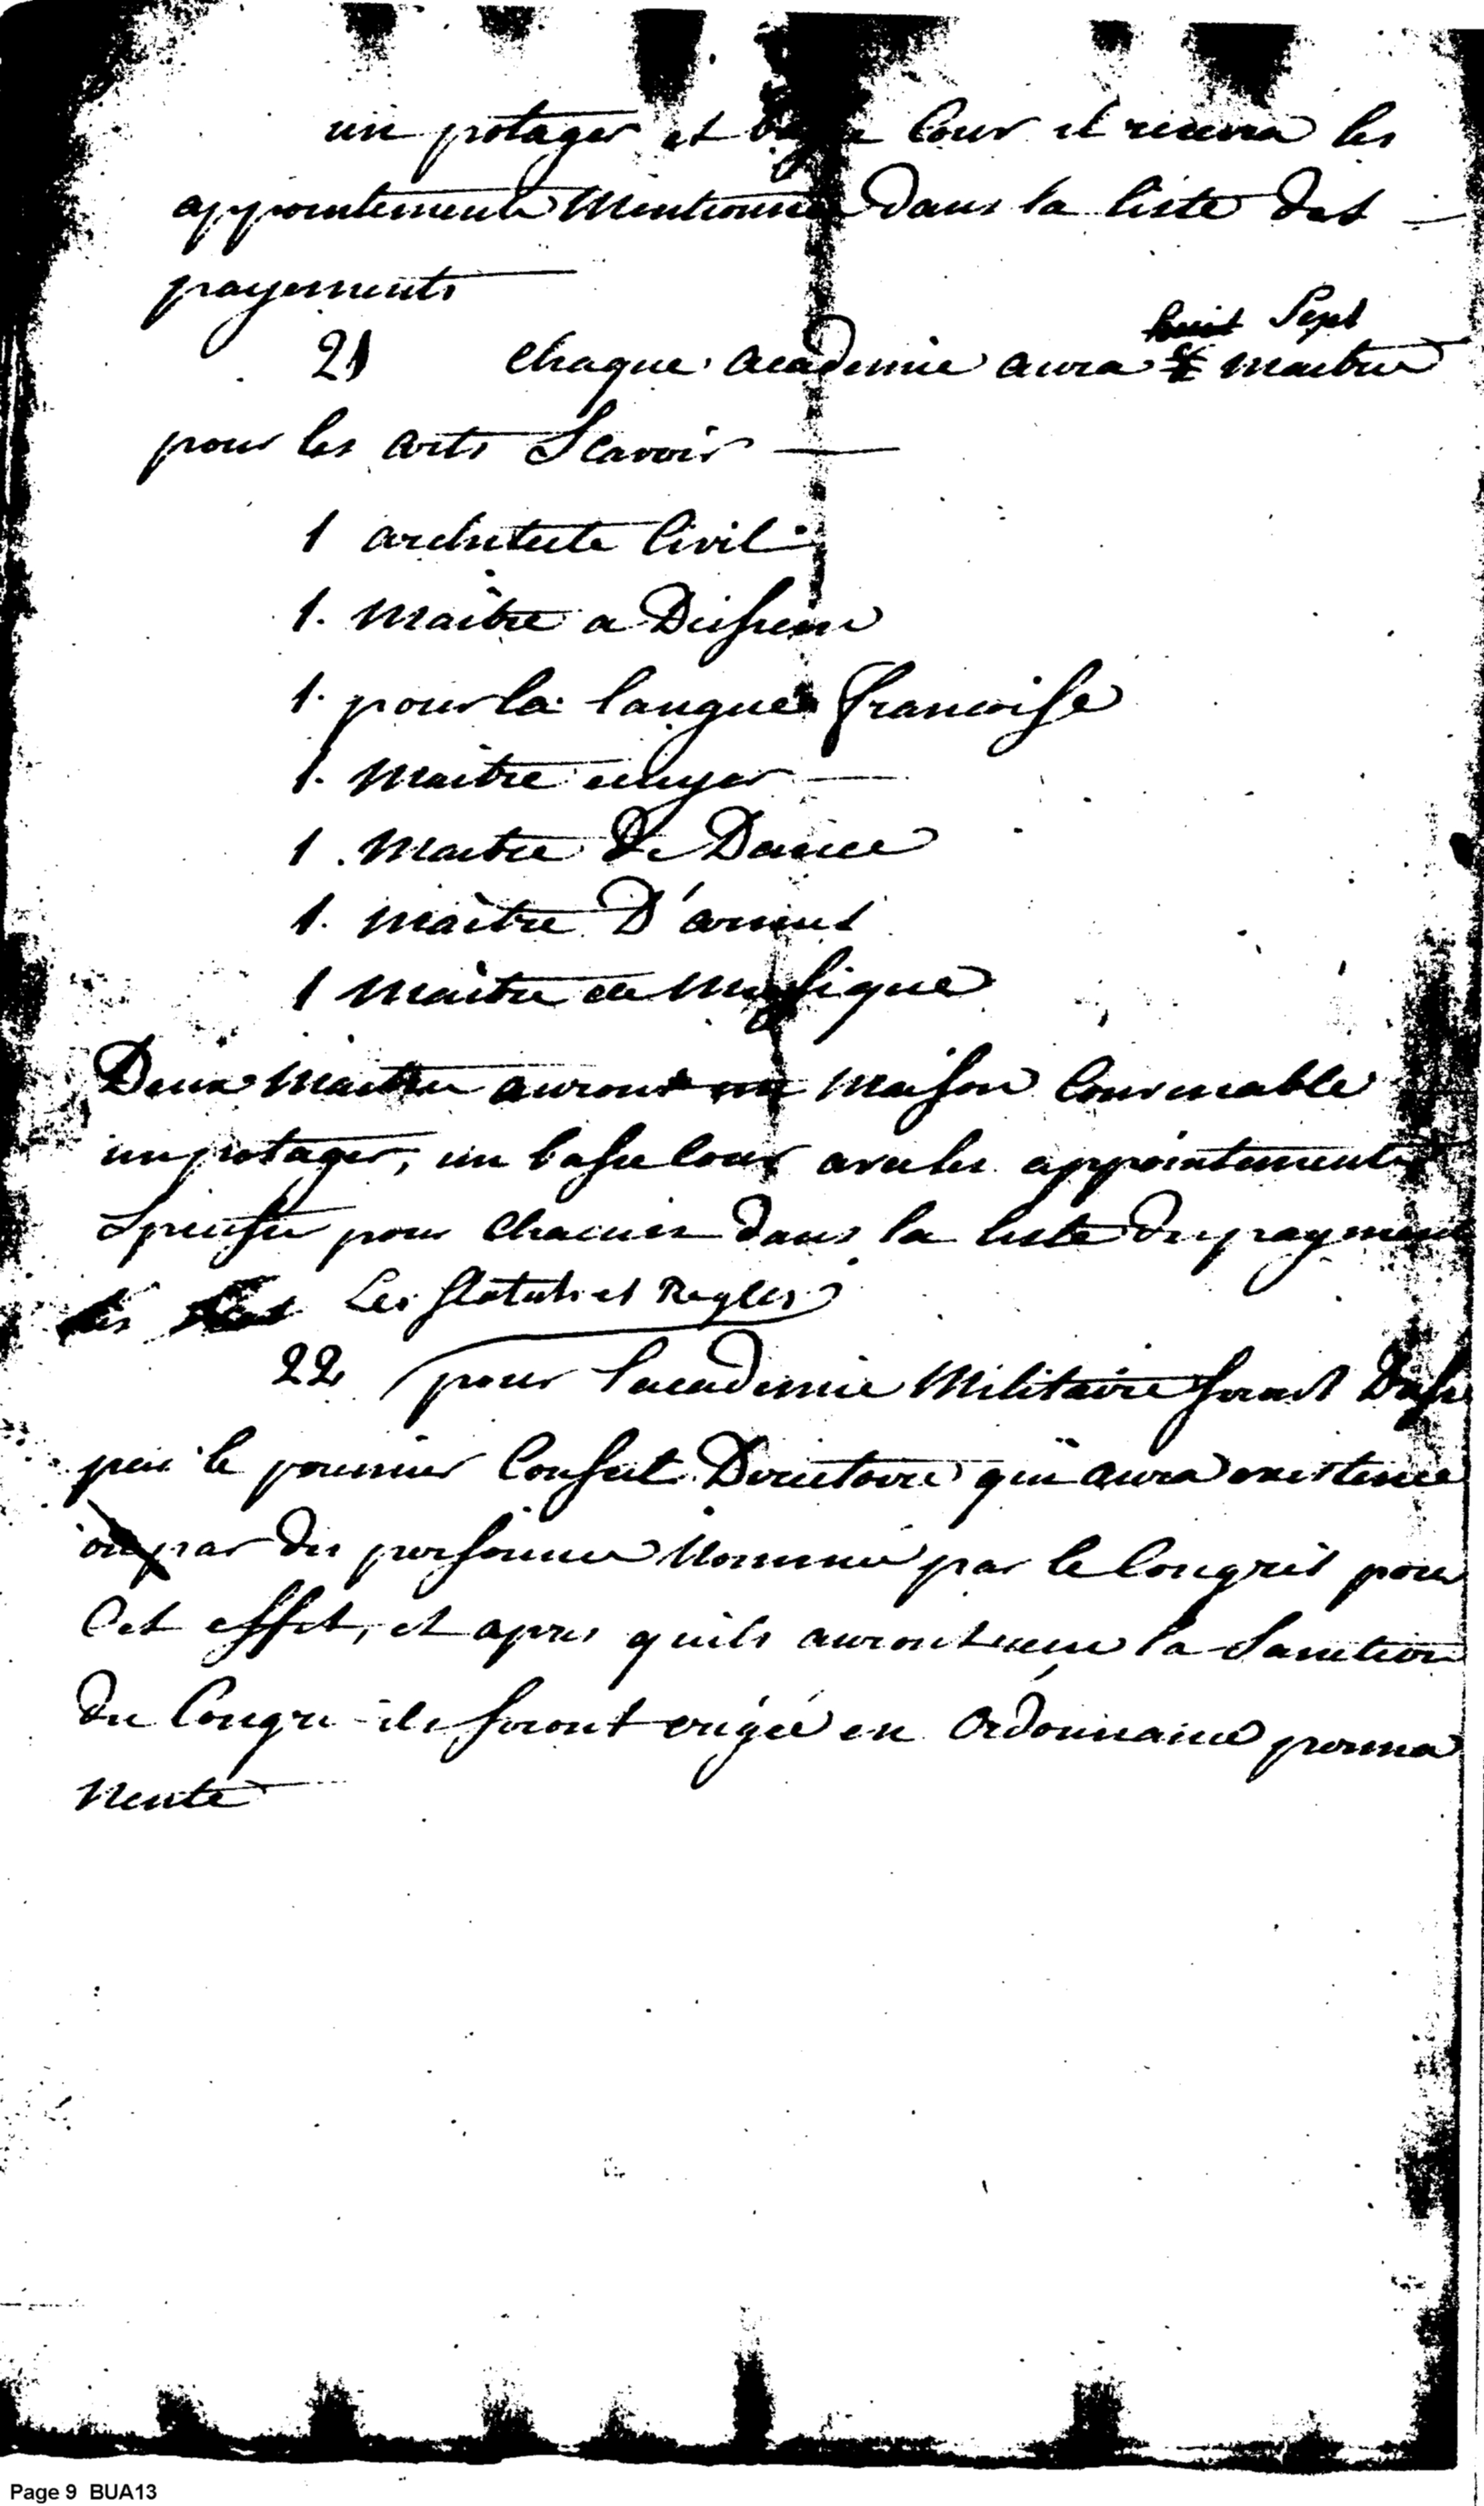 un potager et basse Cour il recevra les
appointements Mentionnés Dans la liste des
payements
huit Sept
21 Chaque academie aura maitres
pour les arts Scavoir
1 architecte Civil
1. Maitre a Dessein
1. pour la langue francoise
1. Maitre ecuyer
1. Maitre De Dance
1. Maitre D'armes
1 Maitre de Musique
Deux Maitres auront une Maison Convenable
un potager, un basse Cour avec les appointements
Specifies pour Chacun dans la liste des payments
Les Statuts et Regles
22 pour l'academie Militaire seront
par le premier Conseil Directoire qui aura existence
ou par des personnes Nommés par le Congrés pour
Cet effet, et apres quils auront la Sanction
Du Congre ils seront erigée en Ordonnance perma
nente
Page 9 BUA13